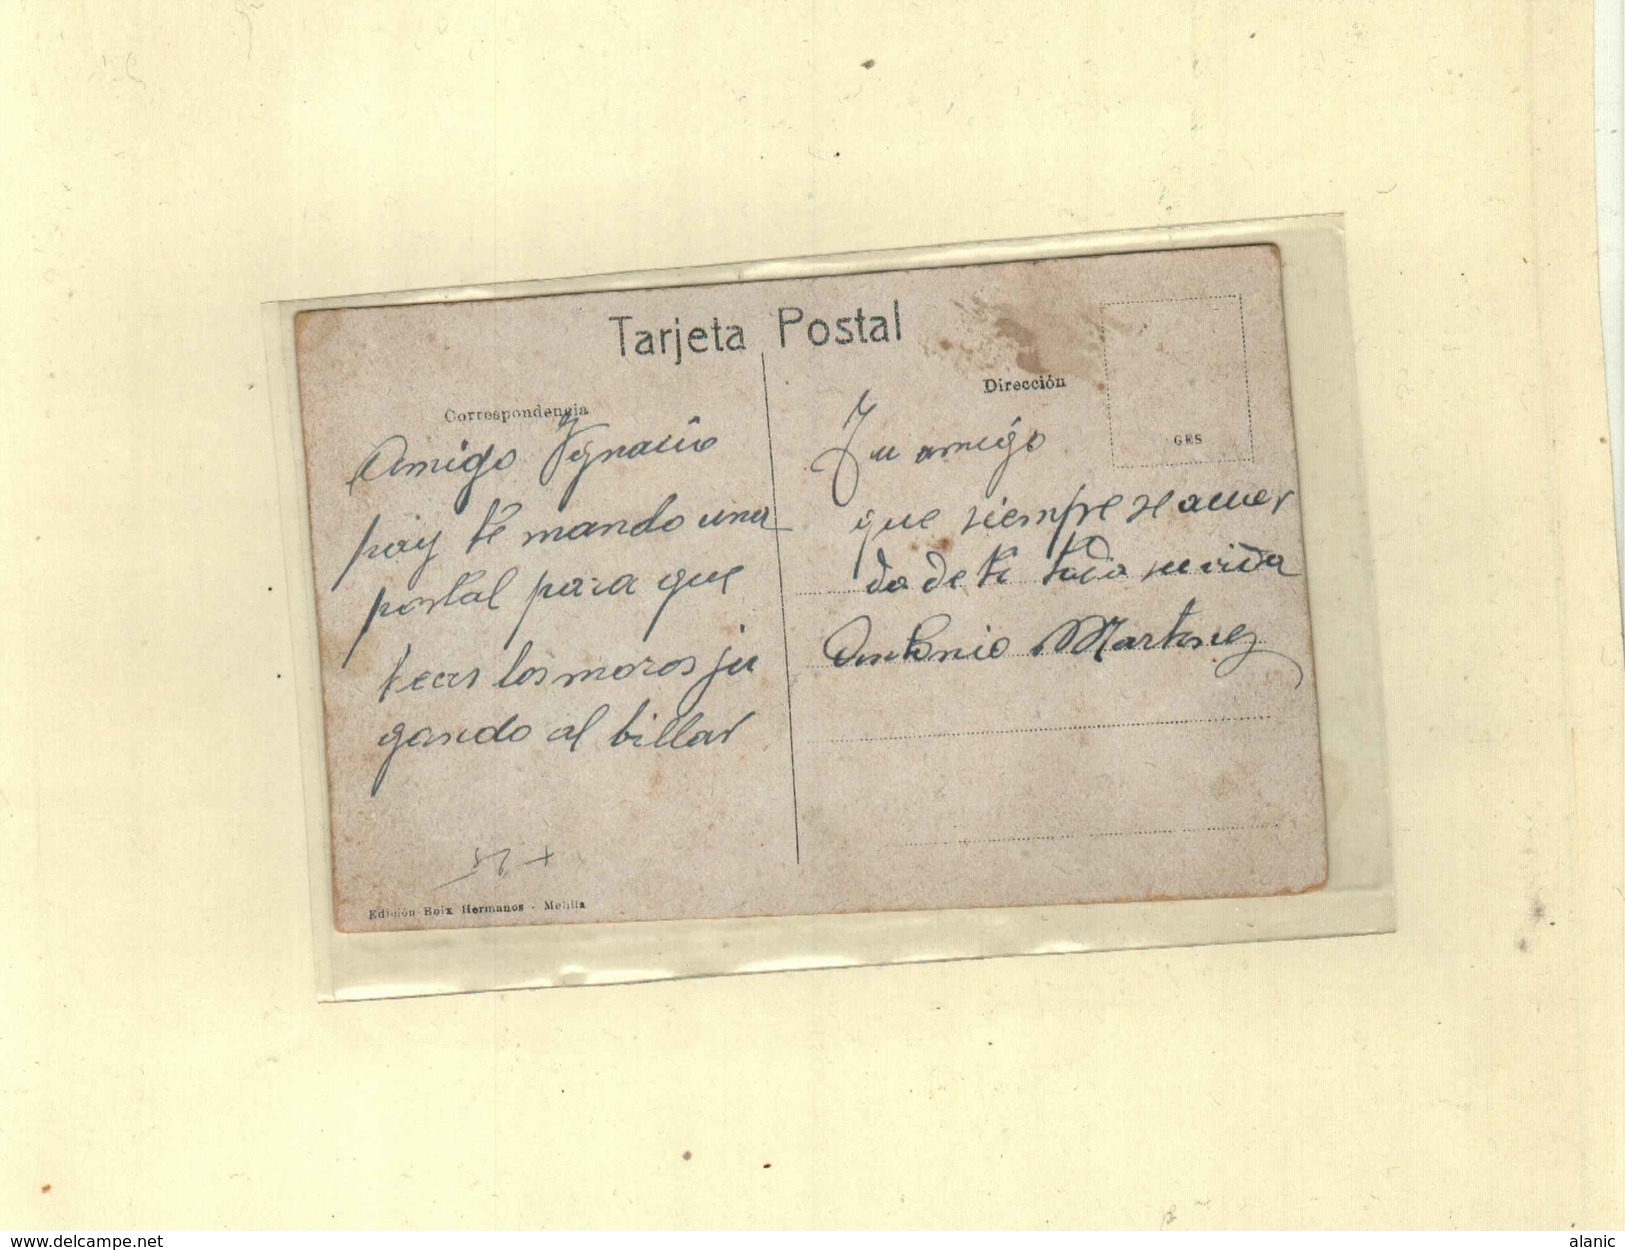 Tarjeta Postal
Correspondencia
Amigo Ygnacio
hoy te mando una
postal para que
veas los moros ju
gando al billar
Edición Boix Hermanos - Melilla
Dirección
GRS
Tu amigo
que siempre se acuer
da de ti toda su vida
Antonio Martinez
www.delcampe.net
alanic